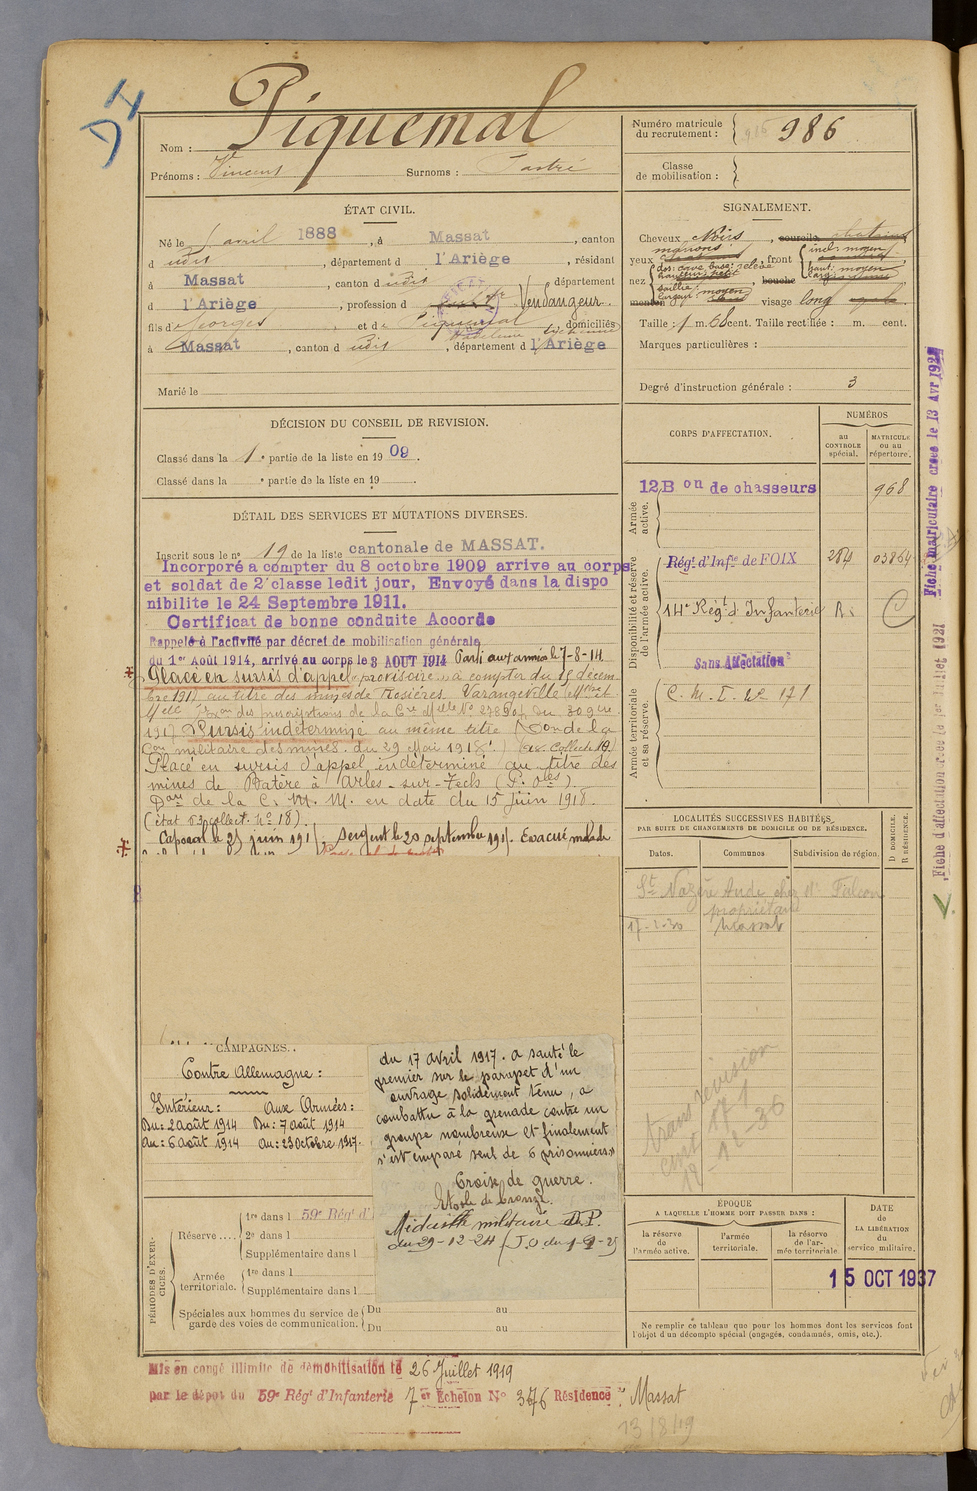 Nom : Piquemal
Prénoms : Vincent Surnoms : Tastré
Numéro matricule du recrutement : 986
Classe de mobilisation :
ÉTAT CIVIL.
Né le 1 avril 1888, à Massat, canton
d udit, département d l'Ariège, résidant
à Massat, canton d udit, département
d l'Ariège, profession d Vendangeur
fils d Georges et d Piquemal domiciliés
à Massat, canton d udit, département d l'Ariège
Marié le
SIGNALEMENT.
Cheveux Noirs, sourcils chatains
yeux marrons, front incl: moyen
haut: moyen
nez dos: cave base: relevé
saillie: moyen bouche
menton visage long
Taille : 1 m. 68 cent. Taille rectifiée : m. cent.
Marques particulières :
Degré d'instruction générale : 3
DÉCISION DU CONSEIL DE REVISION.
Classé dans la 1e partie de la liste en 1909.
Classé dans la e partie de la liste en 19 .
DÉTAIL DES SERVICES ET MUTATIONS DIVERSES.
Inscrit sous le n° 19 de la liste cantonale de MASSAT.
Incorporé a compter du 8 octobre 1909 arrive au corps
et soldat de 2e classe ledit jour, Envoyé dans la dispo
nibilite le 24 Septembre 1911.
Certificat de bonne conduite Accorde
Rappelé à l'activité par décret de mobilisation générale
du 1er Août 1914, arrivé au corps le 3 AOUT 1914 Parti aux armées le 7-8-14
Placé en sursis d'appel provisoire à compter du 15 décem
bre 1917 au titre des mines de Rosières Varangeville
des prescriptions de la Cre Mlle No
1917 Sursis indéterminé au même titre (Don de la
Con militaire des mines du 29 Mai 1918) (ex. Collect. 19)
Placé en sursis d'appel indéterminé au titre des
mines de Batère à Arles-sur-Tech (P. Oles).
Don de la C. M. M. en date du 15 Juin 1918.
(état 53 collect. No 18).
Caporal le 25 juin 191 , Sergent le 20 septembre 191 . Evacué malade
CORPS D'AFFECTATION.
NUMÉROS
au CONTROLE spécial.
MATRICULE ou au répertoire.
Armée active.
12 Bon de chasseurs 968
Disponibilité et réserve de l'armée active.
Régt d'Infie de FOIX 284 03864
14e Régt d'Infanterie R.
Sans Affectation
Armée territoriale et sa réserve.
C. M. I. de 171
LOCALITÉS SUCCESSIVES HABITÉES
PAR SUITE DE CHANGEMENTS DE DOMICILE OU DE RÉSIDENCE.
Dates. Communes Subdivision de région. D DOMICILE. R RÉSIDENCE.
St Nazaire Aude chez Mr Falcon
propriétaire
17-2-30 Massat
trans revision
cmt 171
12-36
CAMPAGNES.
Contre Allemagne :
Intérieur : Aux Armées :
Du : 2 août 1914 Du : 7 août 1914
Au : 6 août 1914 Au : 23 octobre 1917.
du 17 avril 1917. a sauté le
premier sur le parapet d'un
ouvrage solidement tenu, a
combattu à la grenade contre un
groupe nombreux et finalement
s'est emparé seul de 6 prisonniers»
Croix de guerre.
Etoile de bronze.
Médaille militaire D.P.
du 29-12-24 (J.O. du 1-9-25
PÉRIODES D'EXERCICES.
Réserve .... 1re dans l 59e Régt d'I
2e dans l
Supplémentaire dans l
Armée territoriale. 1re dans l
Supplémentaire dans l
Spéciales aux hommes du service de garde des voies de communication. Du au
Du au
ÉPOQUE
A LAQUELLE L'HOMME DOIT PASSER DANS :
la réserve de l'armée active.
l'armée territoriale.
la réserve de l'armée territoriale
DATE de LA LIBÉRATION du service militaire.
15 OCT 1937
Ne remplir ce tableau que pour les hommes dont les services font
l'objet d'un décompte spécial (engagés, condamnés, omis, etc.).
Mis en congé illimité de démobilisation le 26 Juillet 1919
par le dépôt du 59e Régt d'Infanterie 7e Echelon No 376 Résidence : Massat
13/8/19
Fiche matriculaire créée le 13 Avr 192
Fiche d'affectation créée le 1er Juillet 1921